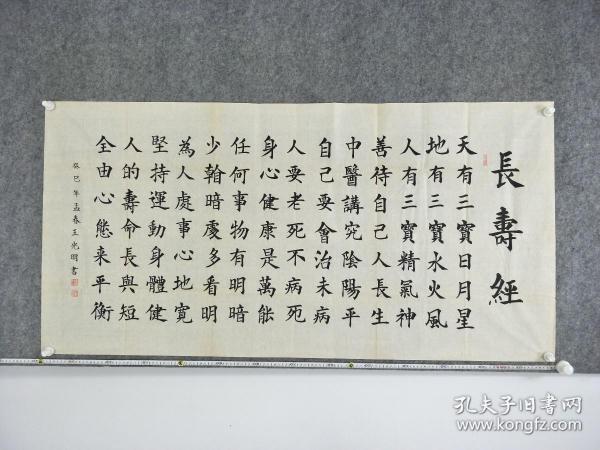 長壽經
天有三寶日月星
地有三寶水火風
人有三寶精氣神
善待自己人長生
中醫講究陰陽平
自己要會治未病
人要老死不病死
身心健康是萬能
任何事物有明暗
少翰暗處多看明
為人處事心地寬
堅持運動身體健
人的壽命長與短
全由心態来平衡
癸巳年孟春王光明書
孔夫子旧书网
www.kongfz.com